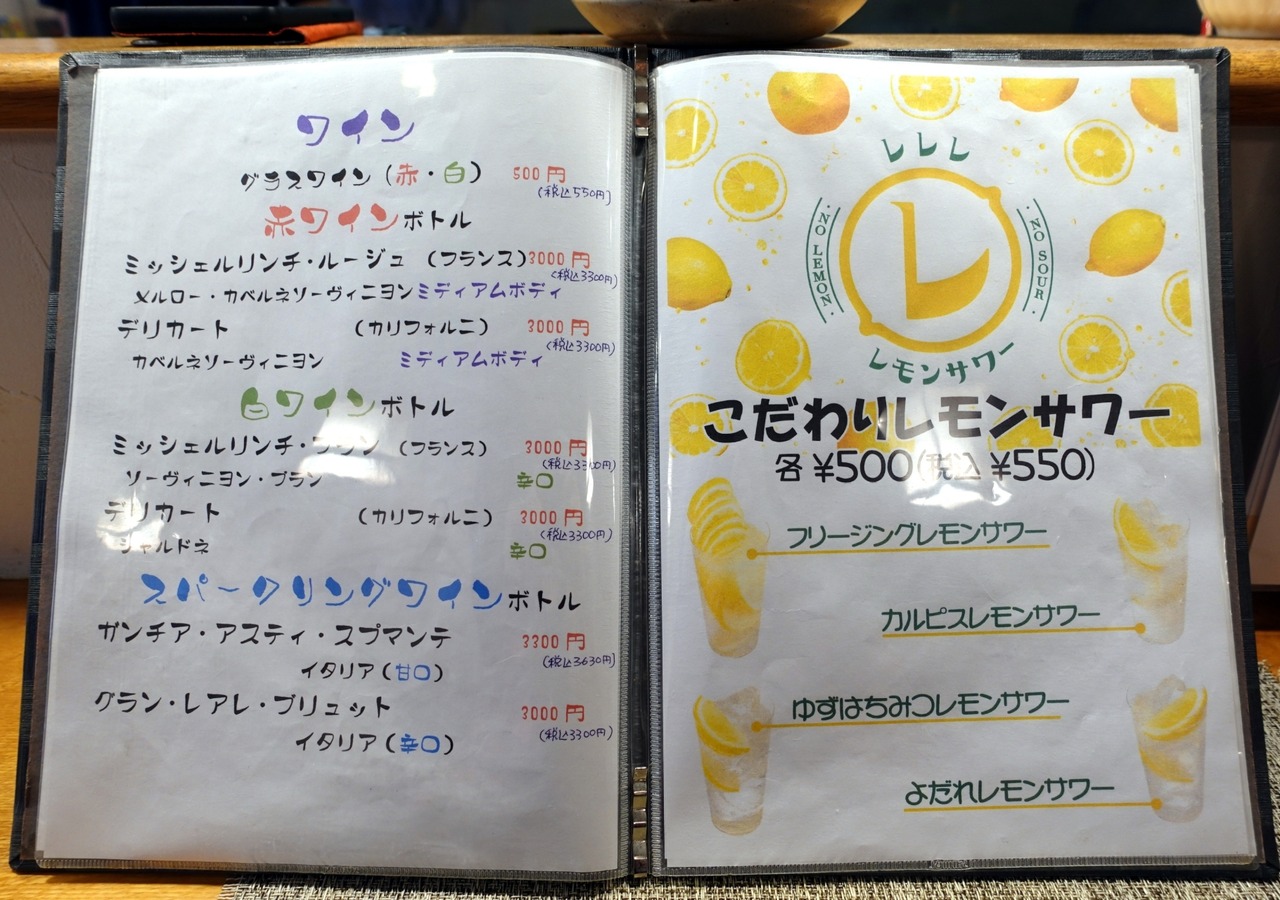 ワイン
グラスワイン(赤・白) 500円
(税込550円)
赤ワインボトル
ミッシェルリンチ・ルージュ (フランス) 3000円
(税込3300円)
メルロー・カベルネソーヴィニヨン ミディアムボディ
デリカート (カリフォルニ) 3000円
(税込3300円)
カベルネソーヴィニヨン ミディアムボディ
白ワインボトル
ミッシェルリンチ・ブラン (フランス) 3000円
(税込3300円)
ソーヴィニヨン・ブラン 辛口
デリカート (カリフォルニ) 3000円
(税込3300円)
シャルドネ 辛口
スパークリングワインボトル
ガンチア・アスティ・スプマンテ 3300円
(税込3630円)
イタリア(甘口)
グラン・レアレ・ブリュット 3000円
(税込3300円)
イタリア(辛口)
レレレ
・NO LEMON・
レ
・NO SOUR・
レモンサワー
こだわりレモンサワー
各¥500(税込¥550)
フリージングレモンサワー
カルピスレモンサワー
ゆずはちみつレモンサワー
よだれレモンサワー